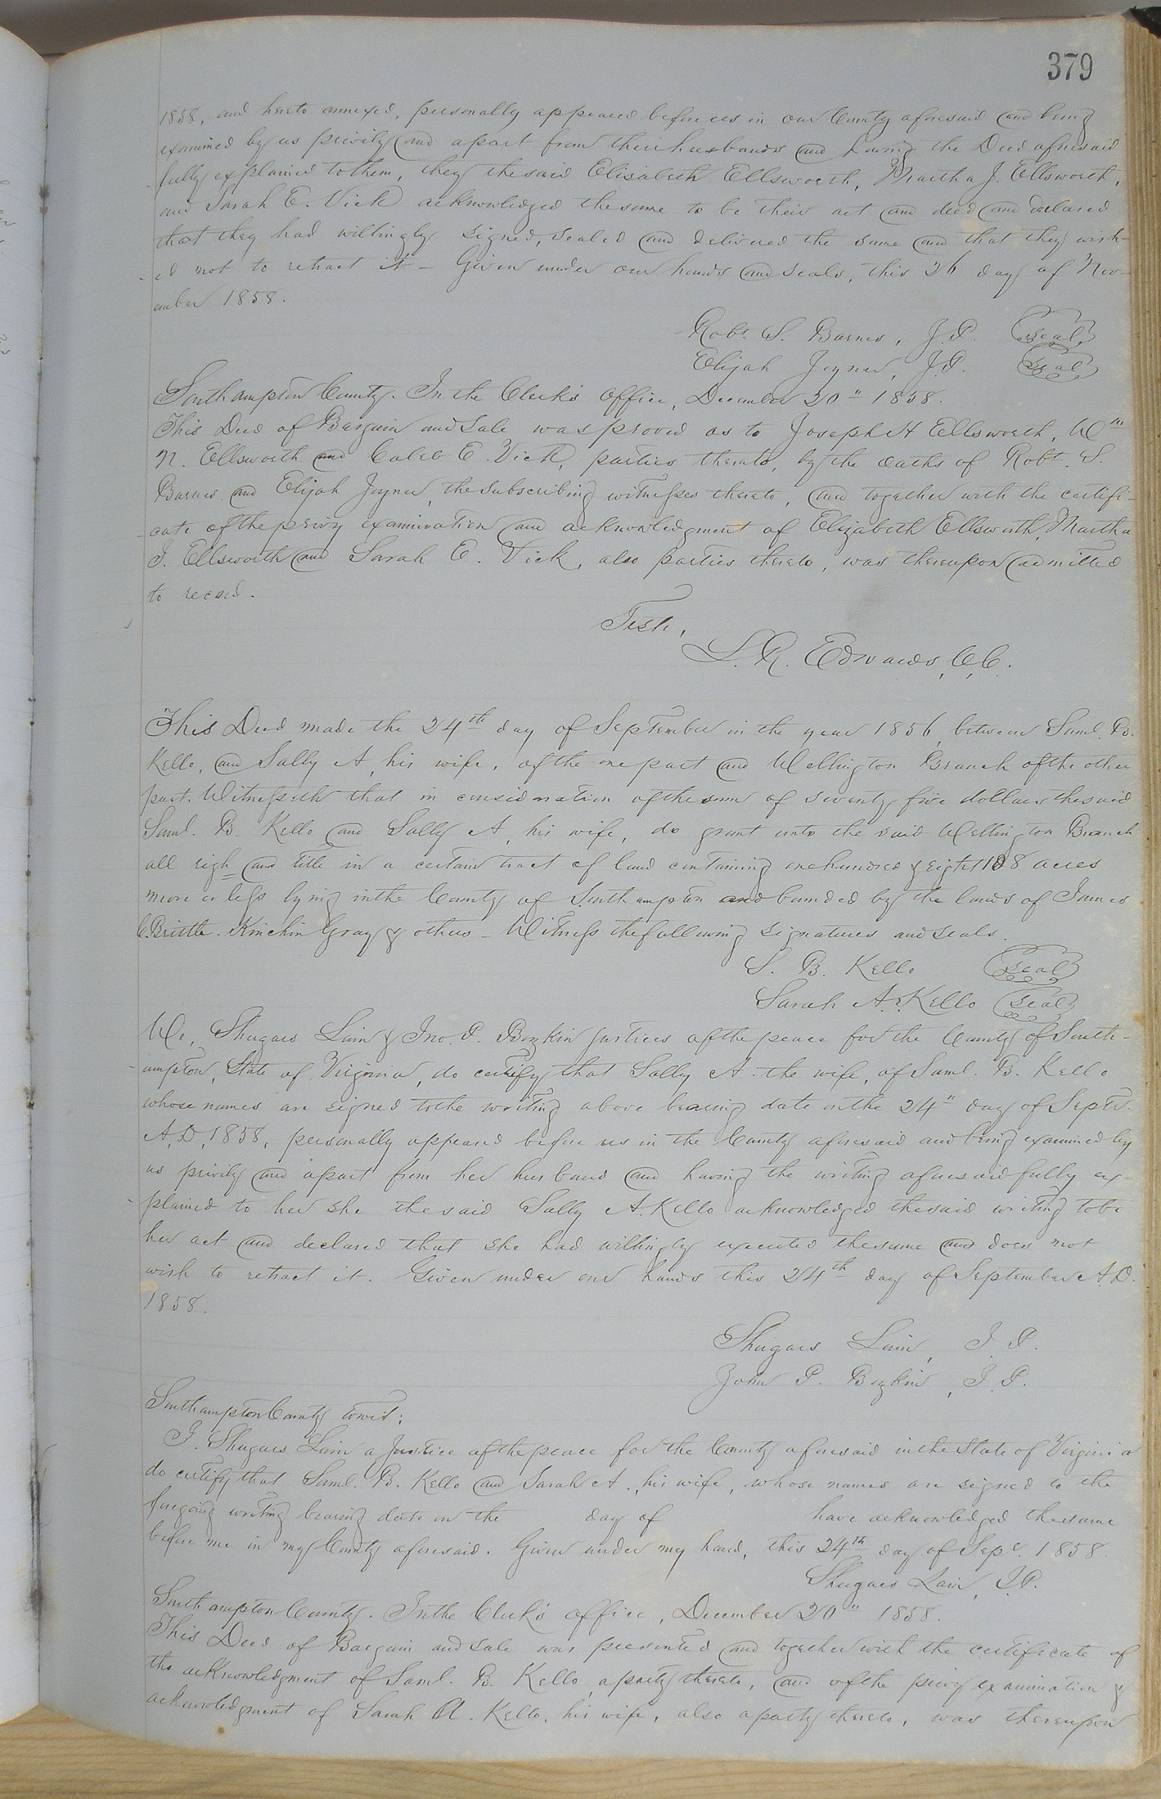 379
1858, and hereto annexed, personally appeared before us in our County aforesaid and being
examined by us privily and apart from their husbands and having the Deed aforesaid
fully explained to them, they the said Elisabeth Ellsworth, Martha J. Ellsworth,
and Sarah E. Vick acknowledged the same to be their act and deed and declared
that they had willingly signed, sealed and delivered the same and that they wish-
ed not to retract it - Given under our hands and seals, this 26 day of Nov-
ember 1858.
Robt. S. Barnes, J.P. Seal
Elijah Joyner, J.P. Seal
Southampton County. In the Clerk's Office, December 20" 1858.
This Deed of Bargain and Sale was proved as to Joseph H Ellsworth, Wm
N. Ellsworth and Caleb E. Vick, parties thereto, by the oaths of Robt. S.
Barnes and Elijah Joyner, the subscribing witnesses thereto, and together with the certifi-
cate of the privy examination and acknowledgment of Elizabeth Ellsworth, Martha
J. Ellsworth and Sarah E. Vick, also parties thereto, was thereupon admitted
to record.
Teste,
L. R. Edwards, C.C.
This Deed made the 24th day of September in the year 1856, between Saml. B.
Kello, and Sally A, his wife, of the one part and Wellington Branch of the other
part. Witnesseth that in consideration of the sum of seventy five dollars the said
Saml. B. Kello and Sally A, his wife, do grant unto the said Wellington Branch
all righ and title in a certain tract of land containing one hundred & eight 108 acres
more or less lying in the County of Southampton and bounded by the lands of James
C. Brittle. Kinchin Gray & others - Witness the following signatures and seals.
S. B. Kello Seal
Sarah A. Kello Seal
We, Shugars Lain & Jno. P. Bozkin justices of the peace for the County of South-
ampton, State of Virginia, do certify that Sally A. the wife, of Saml. B. Kello
whose names are signed to the writing above bearing date on the 24" day of Septr.
A.D. 1858, personally appeared before us in the County aforesaid and being examined by
us privily and apart from her husband and having the writing aforesaid fully ex-
plained to her she the said Sally A. Kello acknowledged the said writing to be
her act and declared that she had willingly executed the same and does not
wish to retract it. Given under our hands this 24th day of September A.D.
1858.
Shugars Lain, J.P.
John P. Bozkin, J.P.
Southampton County towit:
I. Shugars Lain a Justice of the peace for the County aforesaid in the State of Virginia
do certify that Saml. B. Kello and Sarah A., his wife, whose names are signed to the
foregoing writing bearing date on the day of have acknowledged the same
before me in my County aforesaid. Given under my hand, this 24th day of Sept. 1858.
Shugars Lain, J.P.
Southampton County. In the Clerk's office, December 20" 1858.
This Deed of Bargain and Sale was presented and together with the certificate of
the acknowledgment of Saml. B. Kello, a party thereto, and of the privy examination &
acknowledgment of Sarah A. Kello, his wife, also a party thereto, was thereupon